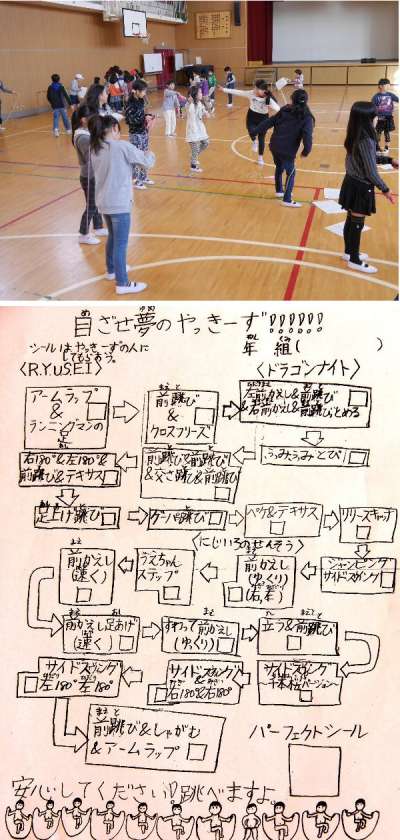 目ざせ夢のやっきーず!!!!!!
年 組( )
シールはやっきーずの人に
してもらおう。
〈R.YUSEI〉
〈ドラゴンナイト〉
アームラップ
&
ランニングマンの
前跳び
&
クロスフリーズ
左前かえし&前跳び
右前かえし&前跳びとめる
右180°&左180°&
前跳び&テキサス
前跳び&前跳び
&交さ跳&前跳び
ふみふみとび
足上げ跳び
グーパー跳び
ヘリ&テキサス
リリースキャッチ
〈にじいろのせんそう〉
前かえし
(速く)
うえちゃん
ステップ
前かえし
(ゆっくり)
(右、左)
ジャンピング
サイドスイング
前かえし足あげ
(速く)
すわって前かえし
(ゆっくり)
立つ&前跳び
サイドスイング
左180°左180°
サイドスイング
右180°&右180°
サイドスイング
千本桜バージョン
前跳び&しゃがむ
&アームラップ
パーフェクトシール
安心してください!跳べますよ。